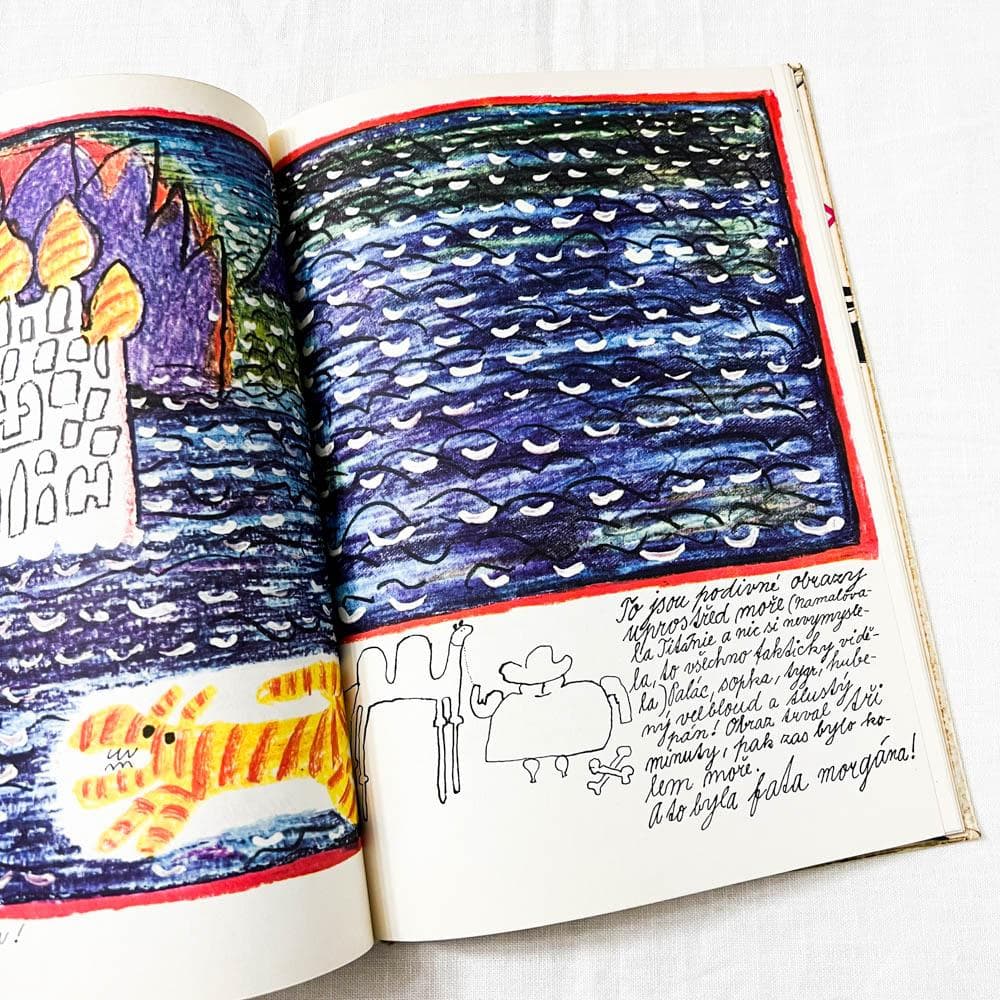 !
To jsou podivné obrazy
uprostřed moře (namalova-
la Titánie a nic si nevymysle-
la, to všechno fakticky vidě-
la) Palác, sopka, tygr, hube-
ný velbloud a tlustý
pán! Obraz trval tři
minuty, pak zas bylo ko-
lem moře.
A to byla fata morgána!